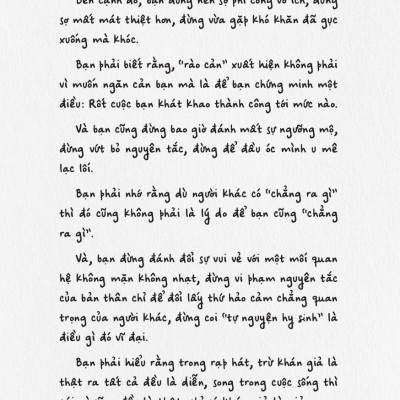 Bên cạnh đó, bạn đừng nên sợ phí công vô ích, đừng
sợ mất mát thiệt hơn, đừng vừa gặp khó khăn đã gục
xuống mà khóc.
Bạn phải biết rằng, "rào cản" xuất hiện không phải
vì muốn ngăn cản bạn mà là để bạn chứng minh một
điều: Rốt cuộc bạn khát khao thành công tới mức nào.
Và bạn cũng đừng bao giờ đánh mất sự ngưỡng mộ,
đừng vứt bỏ nguyên tắc, đừng để đầu óc mình u mê
lạc lối.
Bạn phải nhớ rằng dù người khác có "chẳng ra gì"
thì đó cũng không phải là lý do để bạn cũng "chẳng
ra gì".
Và, bạn đừng đánh đổi sự vui vẻ với một mối quan
hệ không mặn không nhạt, đừng vi phạm nguyên tắc
của bản thân chỉ để đổi lấy thứ hảo cảm chẳng quan
trọng của người khác, đừng coi "tự nguyện hy sinh" là
điều gì đó vĩ đại.
Bạn phải hiểu rằng trong rạp hát, trừ khán giả là
thật ra tất cả đều là diễn, song trong cuộc sống thì